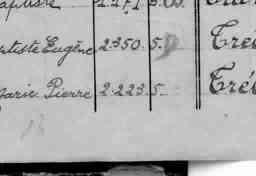 aptiste 2.271 5.05
aptiste Eugène 2.350. 5. Tré
Marie Pierre 2.223. 5. Tré